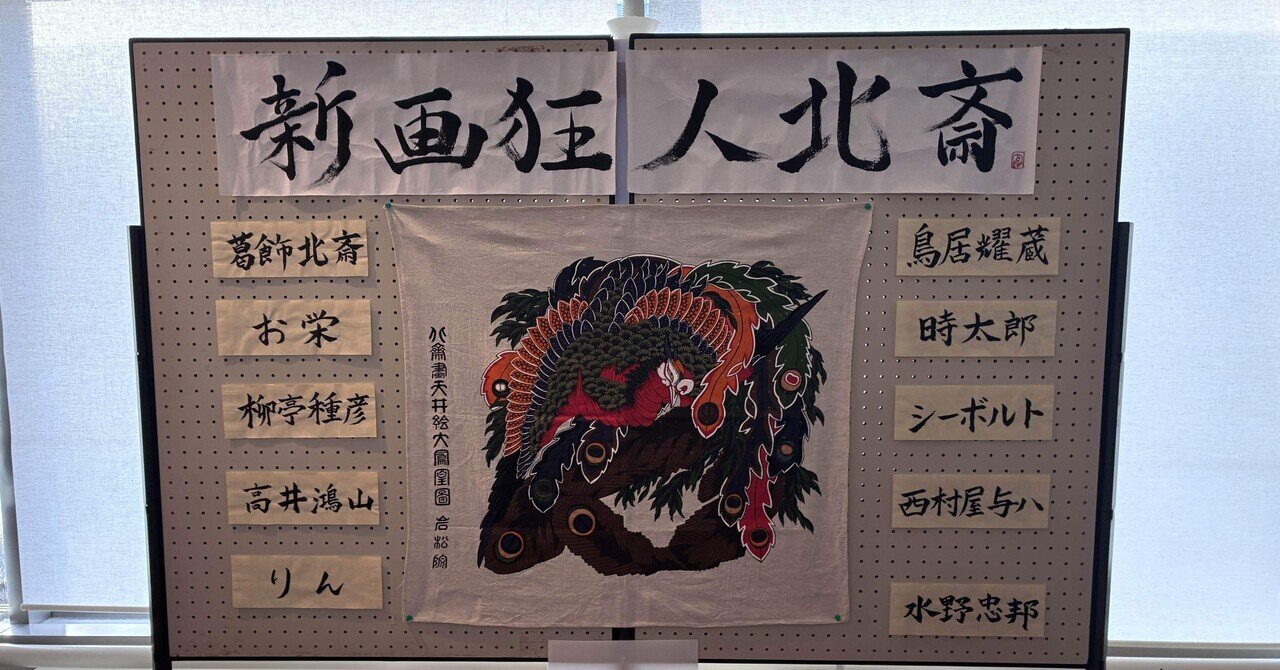 新画狂人北斎
葛飾北斎
お栄
柳亭種彦
高井鴻山
りん
北斎画天井絵大鳳凰圖 岩松院
鳥居耀蔵
時太郎
シーボルト
西村屋与八
水野忠邦